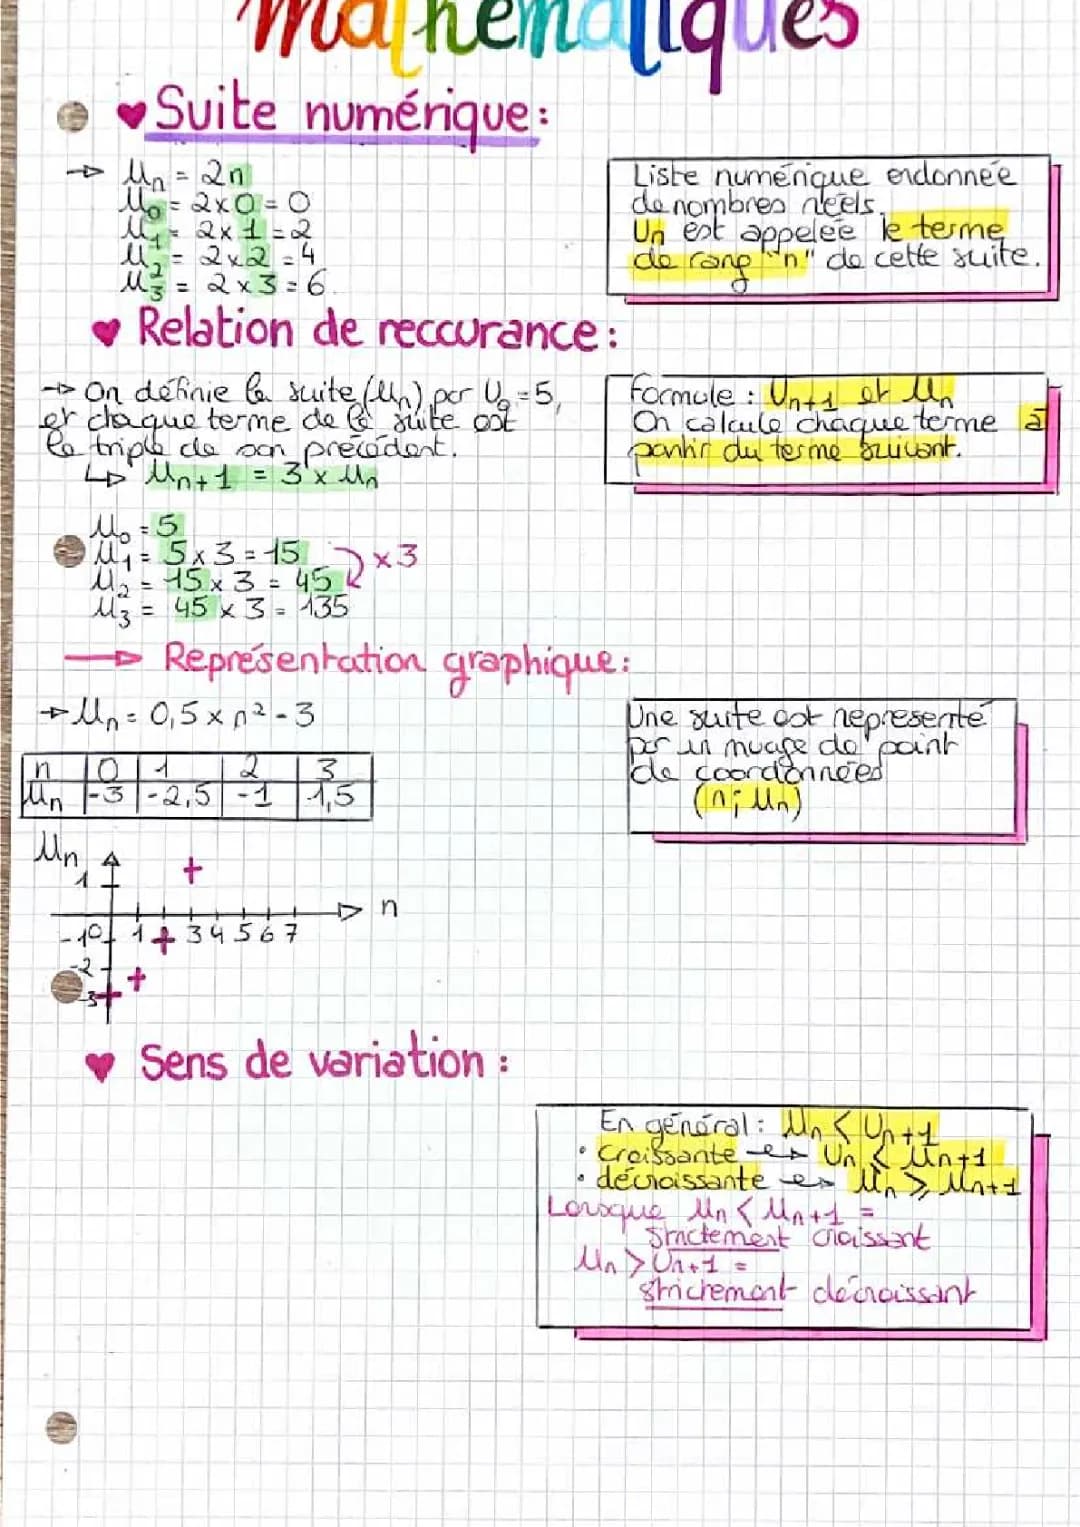 Mathématiques
♥ Suite numérique:
→ Un = 2n
U0 = 2x0 = 0
U1 = 2x1 = 2
U2 = 2x2 = 4
U3 = 2x3 = 6
Liste numérique ordonnée
de nombres réels.
Un est appelée le terme
de rang "n" de cette suite.
♥ Relation de reccurance:
→ On définie la suite (Un) par U0 = 5,
et chaque terme de la suite est
le triple de son précédent.
↳ Un+1 = 3 x Un
Formule : Un+1 et Un
On calcule chaque terme à
partir du terme suivant.
U0 = 5
U1 = 5 x 3 = 15
U2 = 15 x 3 = 45
U3 = 45 x 3 = 135
x3
→ Représentation graphique:
→ Un = 0,5 x n² - 3
n 0 1 2 3
Un -3 -2,5 -1 1,5
Une suite est representé
par un nuage de point
de coordonnées
(n; Un)
Un
1
n
-1 0 1 3 4 5 6 7
-2
-3
♥ Sens de variation :
En général : Un < Un+1
• Croissante → Un ≤ Un+1
• décroissante → Un ≥ Un+1
Lorsque Un < Un+1 =
strictement croissant
Un > Un+1 =
strictement décroissant